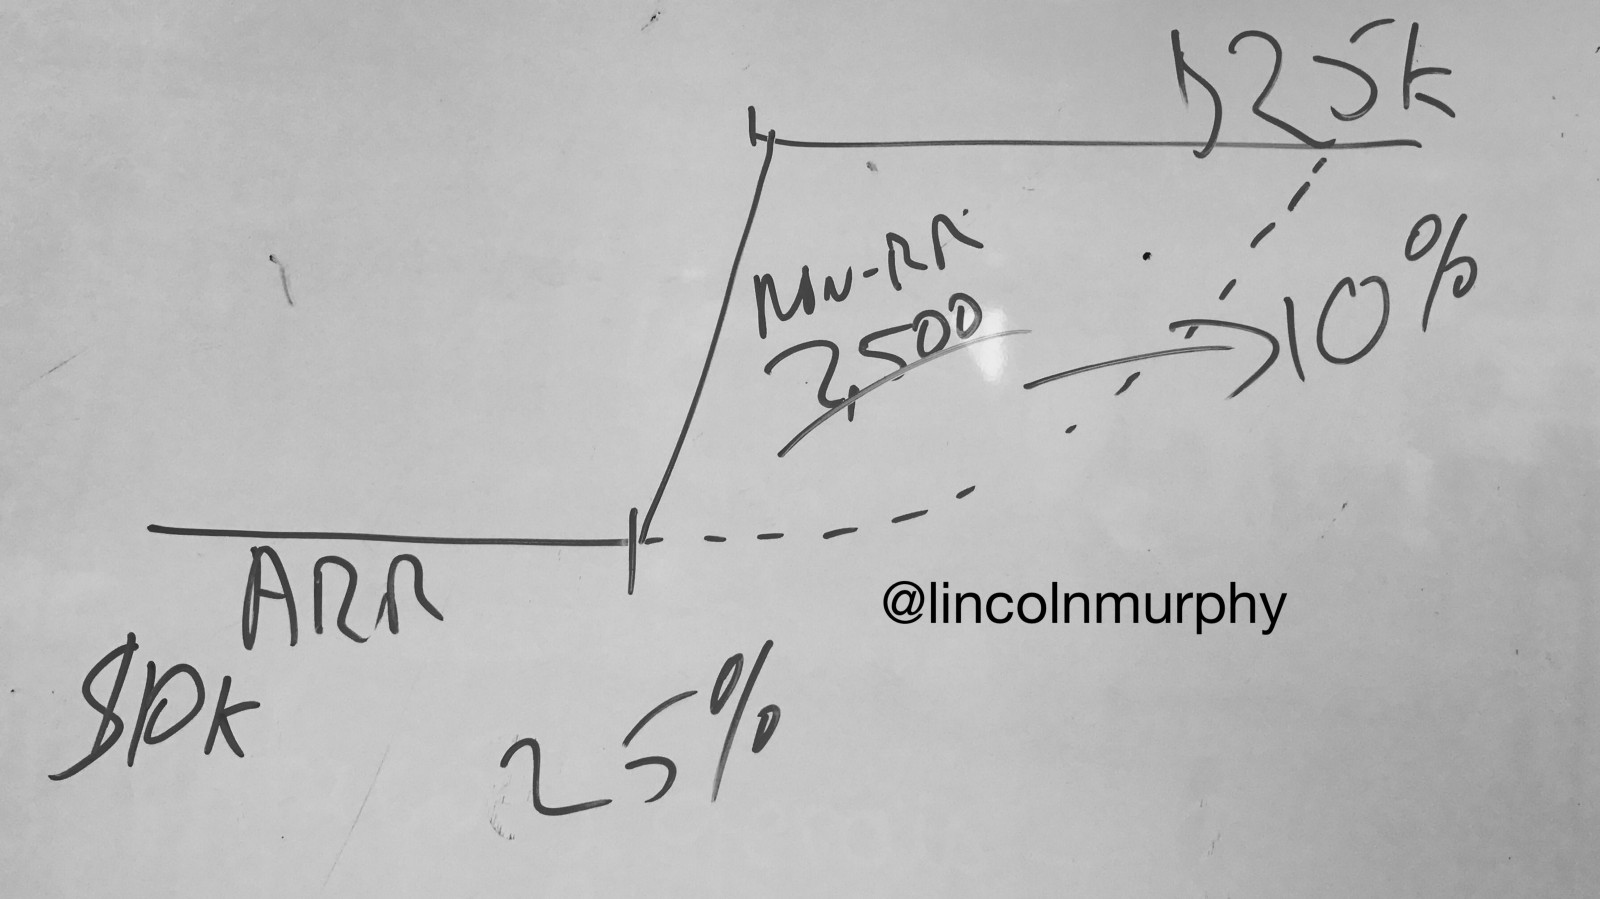 $25k
NON-RR
2,500
10%
ARR
$10k
25%
@lincolnmurphy